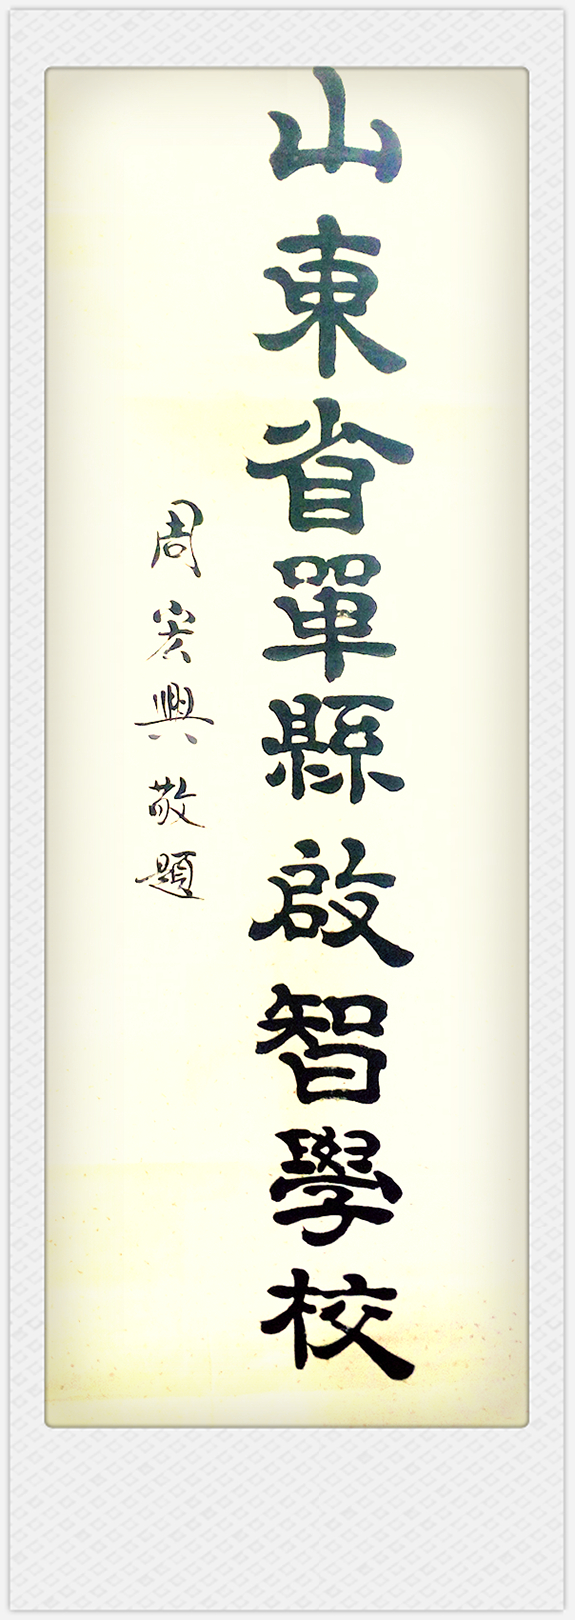 山東省單縣啟智學校
周宏興敬題